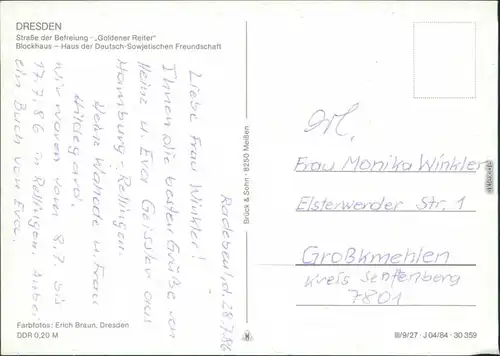 DRESDEN
Straße der Befreiung – „Goldener Reiter"
Blockhaus – Haus der Deutsch-Sowjetischen Freundschaft
Radebeul, d. 28.7.86
Liebe Frau Winkler!
Ihnen die besten Grüße von
Heinz u. Eva Geissler aus
Hamburg-Rellingen.
Heinz u. Frau
Hildegard.
Wir waren vom 8.7. bis
17.7.86 in Rellingen. Anbei
ein Buch von Eva.
Farbfotos: Erich Braun, Dresden
DDR 0,20 M
Brück & Sohn · 8250 Meißen
Frau Monika Winkler
Elsterwerder Str. 1
Großkmehlen
Kreis Senftenberg
7801
III/9/27 · J 04/84 · 30 359